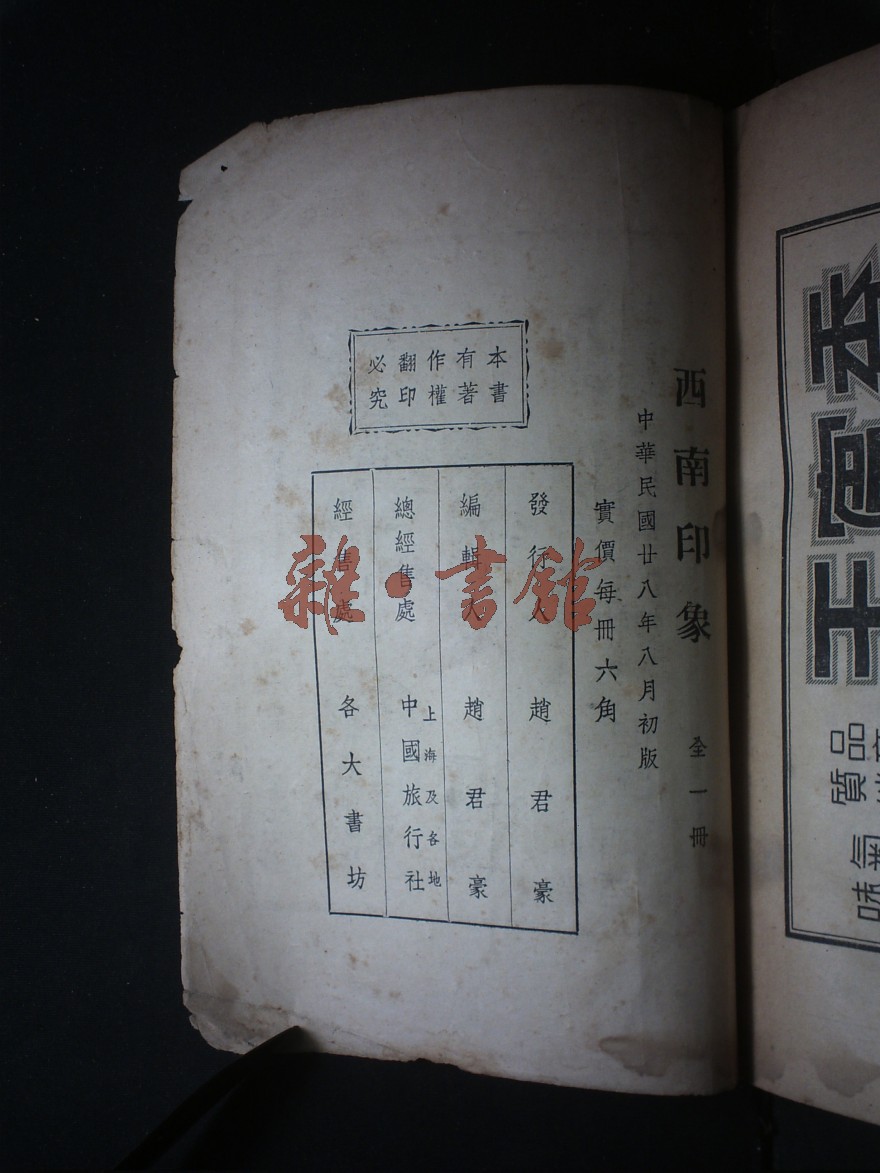 西南印象 全一冊
中華民國廿八年八月初版
實價每冊六角
本書
有著
作權
翻印
必究
發行人 趙君豪
編輯人 趙君豪
總經售處 上海及各地
中國旅行社
經售處 各大書坊
雜·書館
品
質
氣
味